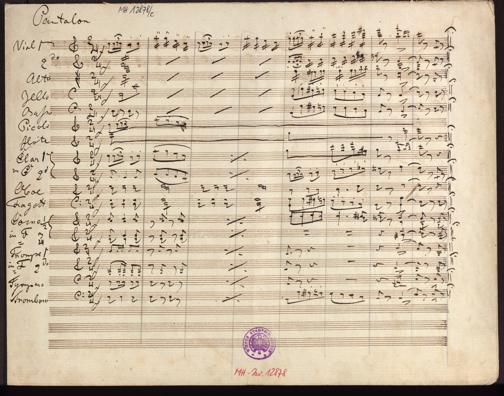 Pentalon
MH 12878/c
Viol 1
2do
Alto
Zello
Basso
Piccolo
Flöte
Clar 1
in C 2do
Oboe
Fagott
Corno 1
in F 2
Trompet 1
in F 2do
Tympano
Trombone
MH-Inv. 12878